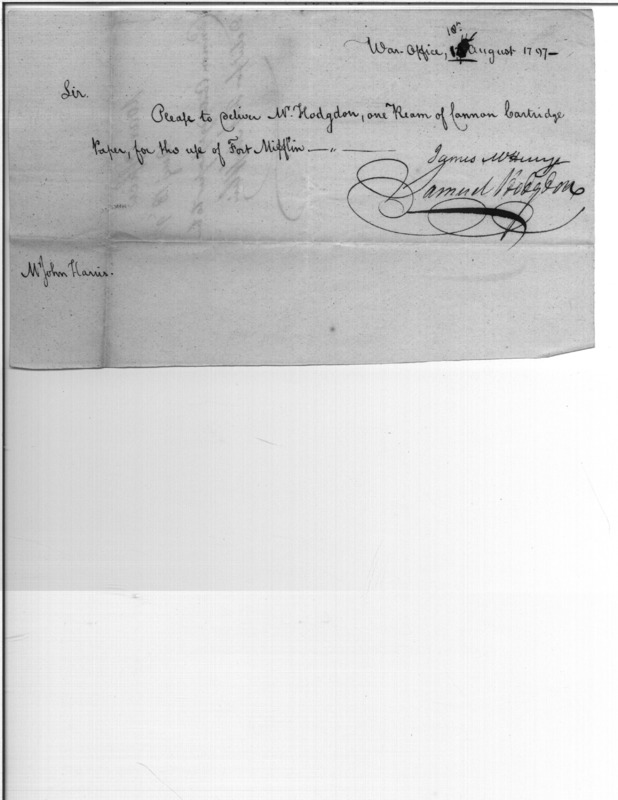 18th
War Office, August 1797-
Sir.
Please to deliver Mr. Hodgdon, one Ream of Cannon Cartridge
Paper, for the use of Fort Mifflin — „ —
James McHenry
Samuel Hodgdon
Mr John Harris.